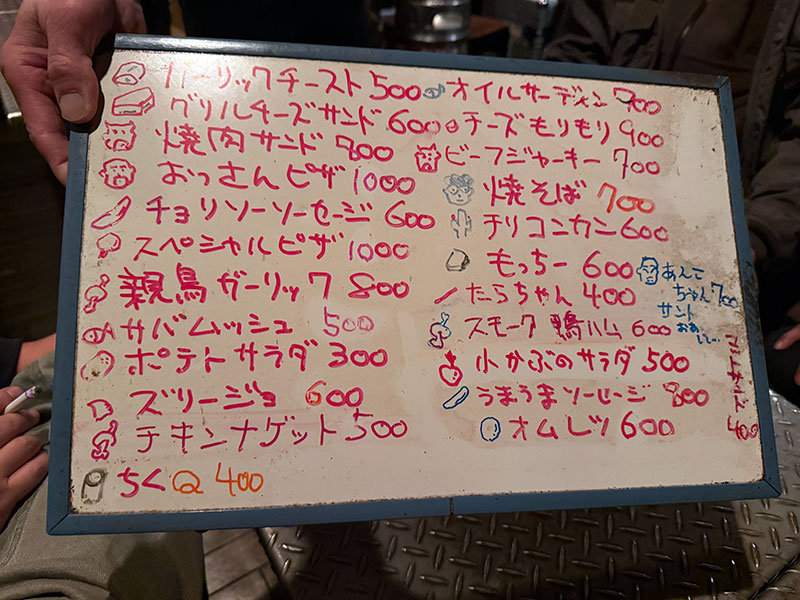 ガーリックチースト 500
グリルチーズサンド 600
焼肉サンド 800
おっさんピザ 1000
チョリソーソーセージ 600
スペシャルピザ 1000
親鳥ガーリック 800
サバムッシュ 500
ポテトサラダ 300
ズリージョ 600
チキンナゲット 500
ちくQ 400
オイルサーディン 700
チーズもりもり 900
ビーフジャーキー 700
焼そば 700
チリコンカン 600
もっちー 600
たらちゃん 400
スモーク鴨ハム 600
小かぶのサラダ 500
うまうまソーセージ 800
オムレツ 600
あんこ
ちゃん 700
サンド
400